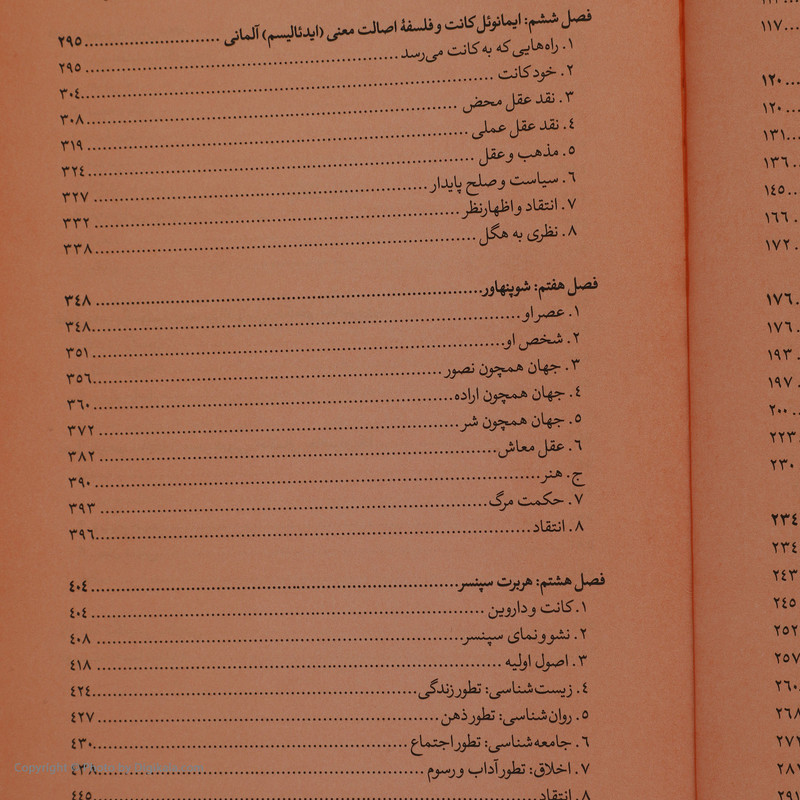 فصل ششم: ایمانوئل کانت و فلسفهٔ اصالت معنی (ایدئالیسم) آلمانی ........ ۲۹۵
۱. راه‌هایی که به کانت می‌رسد ........ ۲۹۵
۲. خود کانت ........ ۳۰٤
۳. نقد عقل محض ........ ۳۰۸
٤. نقد عقل عملی ........ ۳۱۹
۵. مذهب و عقل ........ ۳۲٤
٦. سیاست و صلح پایدار ........ ۳۲۷
۷. انتقاد و اظهارنظر ........ ۳۳۲
۸. نظری به هگل ........ ۳۳۸
فصل هفتم: شوپنهاور ........ ۳٤۸
۱. عصر او ........ ۳٤۸
۲. شخص او ........ ۳۵۱
۳. جهان همچون نصور ........ ۳۵٦
٤. جهان همچون اراده ........ ۳٦۰
۵. جهان همچون شر ........ ۳۷۲
٦. عقل معاش ........ ۳۸۲
ج. هنر ........ ۳۹۰
۷. حکمت مرگ ........ ۳۹۳
۸. انتقاد ........ ۳۹٦
فصل هشتم: هربرت سپنسر ........ ٤۰٤
۱. کانت و داروین ........ ٤۰٤
۲. نشو و نمای سپنسر ........ ٤۰۸
۳. اصول اولیه ........ ٤۱۸
٤. زیست‌شناسی: تطور زندگی ........ ٤۲٤
۵. روان‌شناسی: تطور ذهن ........ ٤۲۷
٦. جامعه‌شناسی: تطور اجتماع ........ ٤۳۰
۷. اخلاق: تطور آداب و رسوم ........ ٤۳۸
۸. انتقاد ........ ٤٤۵
۱۱۷
۱۲۰
۱۲۰
۱۳۱
۱۳٦
۱٤۵
۱٦٦
۱۷۲
۱۷٦
۱۷٦
۱۹۳
۱۹۷
۲۰۰
۲۲۳
۲۳۰
۲۳٤
۲۳٤
۲٤۳
۲٤۵
۲۵۲
۲۵۷
۲٦۰
۲٦۸
۲۷۱
۲۸۱
۲۹۱